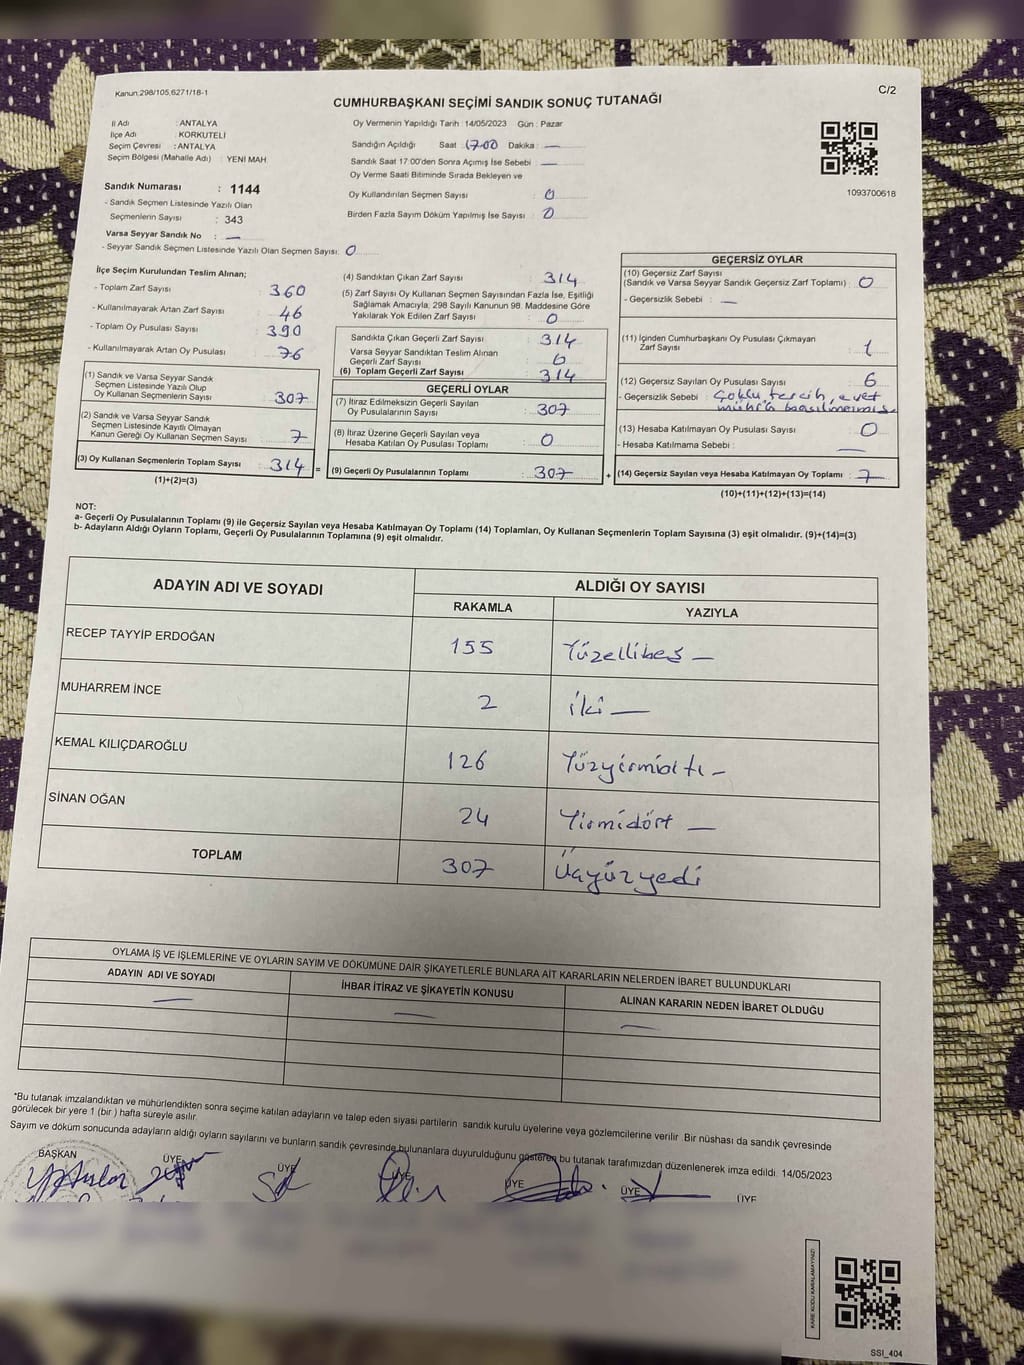 Kanun:298/105,6271/18-1
C/2
CUMHURBAŞKANI SEÇİMİ SANDIK SONUÇ TUTANAĞI
İl Adı : ANTALYA
İlçe Adı : KORKUTELİ
Seçim Çevresi : ANTALYA
Seçim Bölgesi (Mahalle Adı) : YENİ MAH
Sandık Numarası : 1144
- Sandık Seçmen Listesinde Yazılı Olan
Seçmenlerin Sayısı : 343
Varsa Seyyar Sandık No : —
- Seyyar Sandık Seçmen Listesinde Yazılı Olan Seçmen Sayısı: 0
Oy Vermenin Yapıldığı Tarih : 14/05/2023 Gün : Pazar
Sandığın Açıldığı Saat : 17:00 Dakika : —
Sandık Saat 17:00'den Sonra Açımış İse Sebebi : —
Oy Verme Saati Bitiminde Sırada Bekleyen ve
Oy Kullandırılan Seçmen Sayısı : 0
Birden Fazla Sayım Döküm Yapılmış İse Sayısı : 0
1093700618
İlçe Seçim Kurulundan Teslim Alınan;
- Toplam Zarf Sayısı : 360
- Kullanılmayarak Artan Zarf Sayısı : 46
- Toplam Oy Pusulası Sayısı : 390
- Kullanılmayarak Artan Oy Pusulası : 76
(1) Sandık ve Varsa Seyyar Sandık
Seçmen Listesinde Yazılı Olup
Oy Kullanan Seçmenlerin Sayısı : 307
(2) Sandık ve Varsa Seyyar Sandık
Seçmen Listesinde Kayıtlı Olmayan
Kanun Gereği Oy Kullanan Seçmen Sayısı : 7
(3) Oy Kullanan Seçmenlerin Toplam Sayısı : 314 =
(1)+(2)=(3)
(4) Sandıktan Çıkan Zarf Sayısı : 314
(5) Zarf Sayısı Oy Kullanan Seçmen Sayısından Fazla İse, Eşitliği
Sağlamak Amacıyla, 298 Sayılı Kanunun 98. Maddesine Göre
Yakılarak Yok Edilen Zarf Sayısı : 0
Sandıkta Çıkan Geçerli Zarf Sayısı : 314
Varsa Seyyar Sandıktan Teslim Alınan
Geçerli Zarf Sayısı : 0
(6) Toplam Geçerli Zarf Sayısı : 314
GEÇERLİ OYLAR
(7) İtiraz Edilmeksizin Geçerli Sayılan
Oy Pusulalarının Sayısı : 307
(8) İtiraz Üzerine Geçerli Sayılan veya
Hesaba Katılan Oy Pusulası Toplamı : 0
(9) Geçerli Oy Pusulalarının Toplamı : 307 +
GEÇERSİZ OYLAR
(10) Geçersiz Zarf Sayısı
(Sandık ve Varsa Seyyar Sandık Geçersiz Zarf Toplamı) : 0
- Geçersizlik Sebebi : —
(11) İçinden Cumhurbaşkanı Oy Pusulası Çıkmayan
Zarf Sayısı : 1
(12) Geçersiz Sayılan Oy Pusulası Sayısı : 6
- Geçersizlik Sebebi : Çoklu tercih, evet
mührü basılmamış
(13) Hesaba Katılmayan Oy Pusulası Sayısı : 0
- Hesaba Katılmama Sebebi : —
(14) Geçersiz Sayılan veya Hesaba Katılmayan Oy Toplamı : 7
(10)+(11)+(12)+(13)=(14)
NOT:
a- Geçerli Oy Pusulalarının Toplamı (9) ile Geçersiz Sayılan veya Hesaba Katılmayan Oy Toplamı (14) Toplamları, Oy Kullanan Seçmenlerin Toplam Sayısına (3) eşit olmalıdır. (9)+(14)=(3)
b- Adayların Aldığı Oyların Toplamı, Geçerli Oy Pusulalarının Toplamına (9) eşit olmalıdır.
ADAYIN ADI VE SOYADI
ALDIĞI OY SAYISI
RAKAMLA YAZIYLA
RECEP TAYYİP ERDOĞAN 155 Yüzellibeş —
MUHARREM İNCE 2 iki —
KEMAL KILIÇDAROĞLU 126 Yüzyirmialtı -
SİNAN OĞAN 24 Yirmidört —
TOPLAM 307 Üçyüzyedi
OYLAMA İŞ VE İŞLEMLERİNE VE OYLARIN SAYIM VE DÖKÜMÜNE DAİR ŞİKAYETLERLE BUNLARA AİT KARARLARIN NELERDEN İBARET BULUNDUKLARI
ADAYIN ADI VE SOYADI İHBAR İTİRAZ VE ŞİKAYETİN KONUSU ALINAN KARARIN NEDEN İBARET OLDUĞU
— — —
*Bu tutanak imzalandıktan ve mühürlendikten sonra seçime katılan adayların ve talep eden siyasi partilerin sandık kurulu üyelerine veya gözlemcilerine verilir. Bir nüshası da sandık çevresinde
görülecek bir yere 1 (bir) hafta süreyle asılır.
Sayım ve döküm sonucunda adayların aldığı oyların sayılarını ve bunların sandık çevresinde bulunanlara duyurulduğunu gösteren bu tutanak tarafımızdan düzenlenerek imza edildi. 14/05/2023
BAŞKAN ÜYE ÜYE ÜYE ÜYE ÜYE
KARE KODU KARALAMAYINIZ!
SSI_404